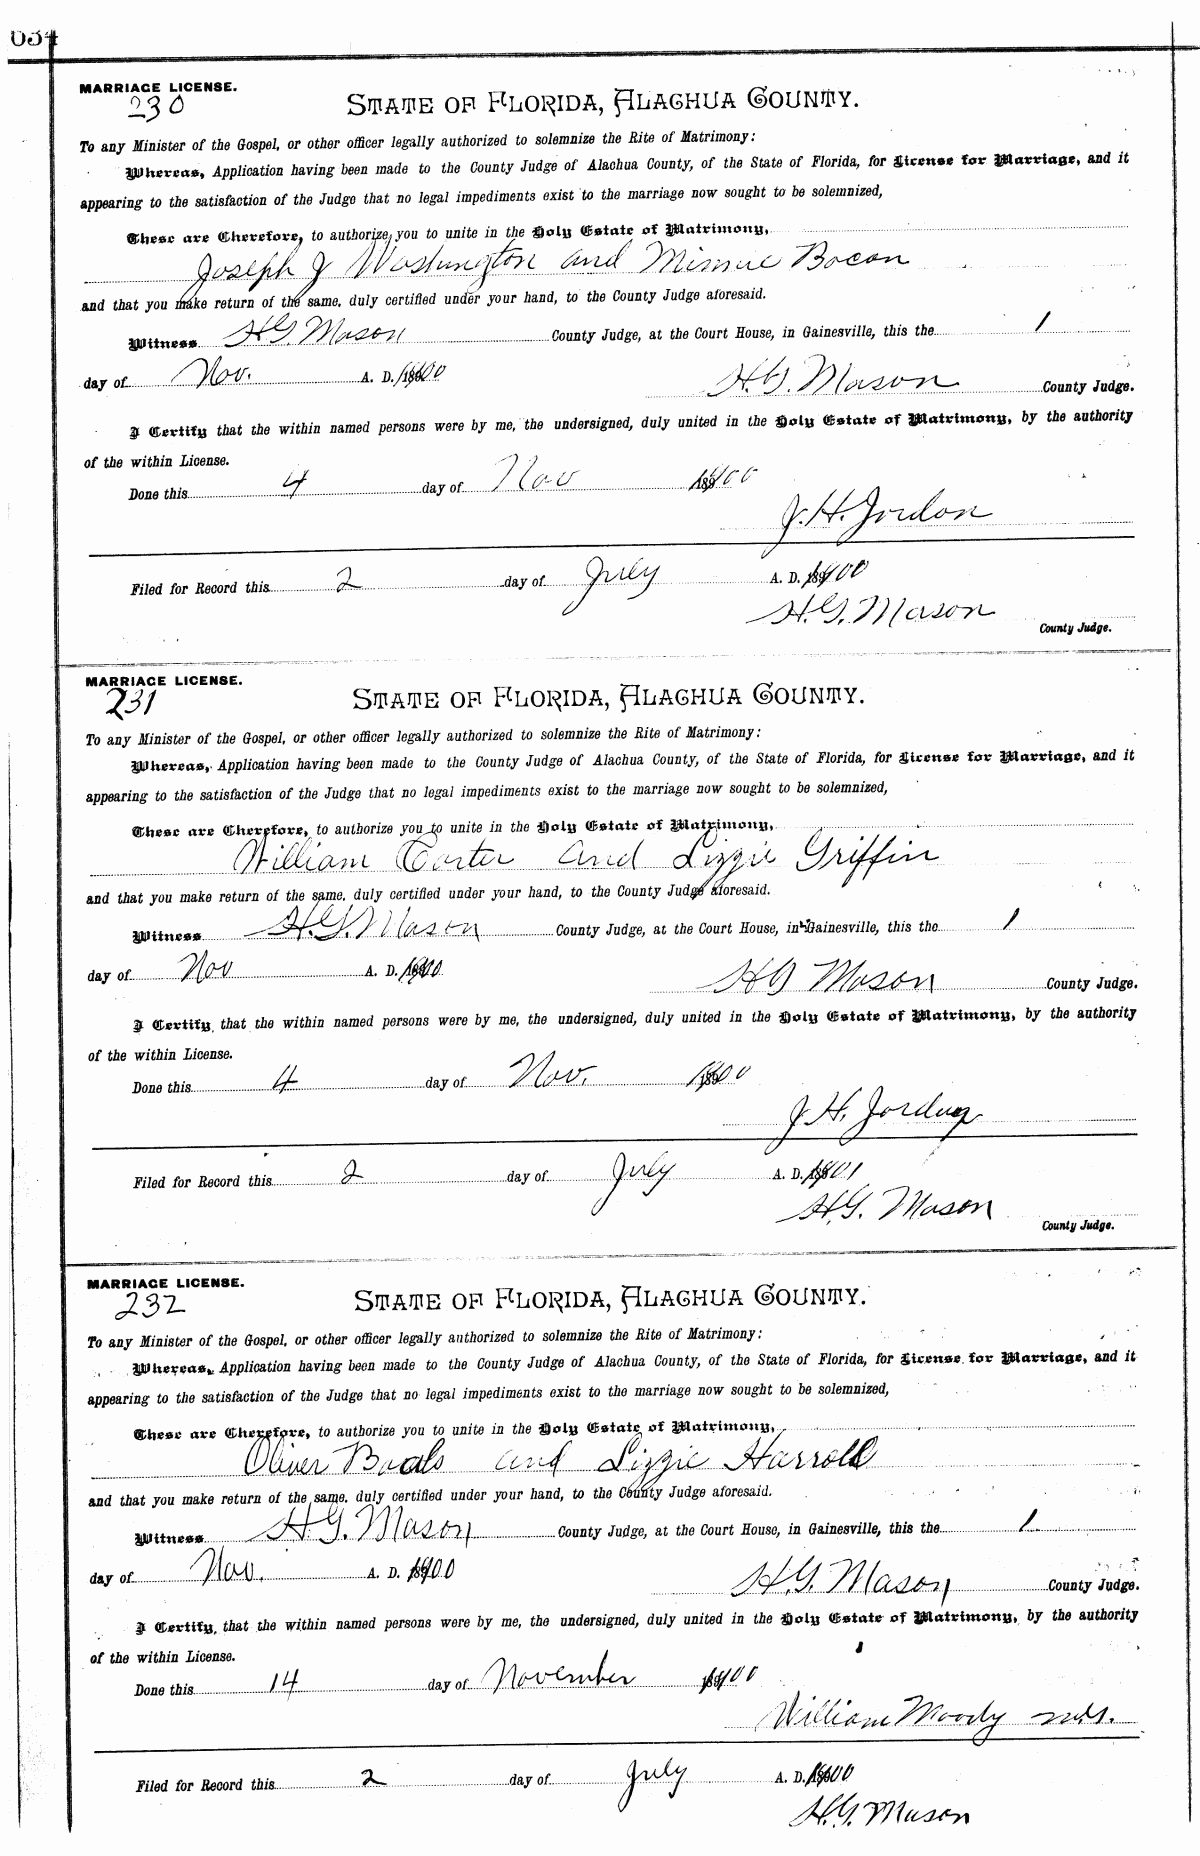 634
MARRIAGE LICENSE.
230
STATE OF FLORIDA, ALACHUA COUNTY.
To any Minister of the Gospel, or other officer legally authorized to solemnize the Rite of Matrimony:
Whereas, Application having been made to the County Judge of Alachua County, of the State of Florida, for License for Marriage, and it
appearing to the satisfaction of the Judge that no legal impediments exist to the marriage now sought to be solemnized,
These are Therefore, to authorize you to unite in the Holy Estate of Matrimony,
Joseph J Washington and Minnie Bocon
and that you make return of the same, duly certified under your hand, to the County Judge aforesaid.
Witness H.G. Mason County Judge, at the Court House, in Gainesville, this the 1
day of Nov. A. D. 1900 H.G. Mason County Judge.
I Certify that the within named persons were by me, the undersigned, duly united in the Holy Estate of Matrimony, by the authority
of the within License.
Done this 4 day of Nov 1900
J. H. Jordon
Filed for Record this 2 day of July A. D. 1900
H. G. Mason
County Judge.
MARRIAGE LICENSE.
231
STATE OF FLORIDA, ALACHUA COUNTY.
To any Minister of the Gospel, or other officer legally authorized to solemnize the Rite of Matrimony:
Whereas, Application having been made to the County Judge of Alachua County, of the State of Florida, for License for Marriage, and it
appearing to the satisfaction of the Judge that no legal impediments exist to the marriage now sought to be solemnized,
These are Therefore, to authorize you to unite in the Holy Estate of Matrimony,
William Carter and Lizzie Griffin
and that you make return of the same, duly certified under your hand, to the County Judge aforesaid.
Witness H.G. Mason County Judge, at the Court House, in Gainesville, this the 1
day of Nov A. D. 1900 H G Mason County Judge.
I Certify, that the within named persons were by me, the undersigned, duly united in the Holy Estate of Matrimony, by the authority
of the within License.
Done this 4 day of Nov. 1900
J. H. Jordan
Filed for Record this 2 day of July A. D. 1901
H. G. Mason
County Judge.
MARRIAGE LICENSE.
232
STATE OF FLORIDA, ALACHUA COUNTY.
To any Minister of the Gospel, or other officer legally authorized to solemnize the Rite of Matrimony:
Whereas, Application having been made to the County Judge of Alachua County, of the State of Florida, for License for Marriage, and it
appearing to the satisfaction of the Judge that no legal impediments exist to the marriage now sought to be solemnized,
These are Therefore, to authorize you to unite in the Holy Estate of Matrimony,
Oliver Boals and Lizzie Harroll
and that you make return of the same, duly certified under your hand, to the County Judge aforesaid.
Witness H. G. Mason County Judge, at the Court House, in Gainesville, this the 1
day of Nov. A. D. 1900 H. G. Mason County Judge.
I Certify, that the within named persons were by me, the undersigned, duly united in the Holy Estate of Matrimony, by the authority
of the within License.
Done this 14 day of November 1900
William Moody
Filed for Record this 2 day of July A. D. 1900
H. G. Mason